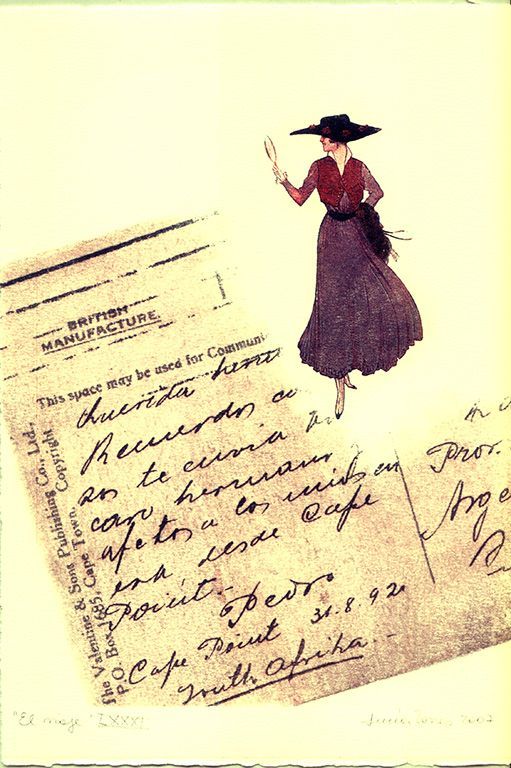 BRITISH
MANUFACTURE.
This space may be used for Communi
The Valentine & Sons Publishing Co., Ltd.,
P.O. Box 1685, Cape Town. Copyright
Querida herm
Recuerdos ca
sos te envia tu
caro hermano
afectos a los mios en
esa desde Cape
Point.-
Pedro
Cape Point 31.8.920
South Afrika -
Prov.
Arge
"El viaje" LXXXI
2007